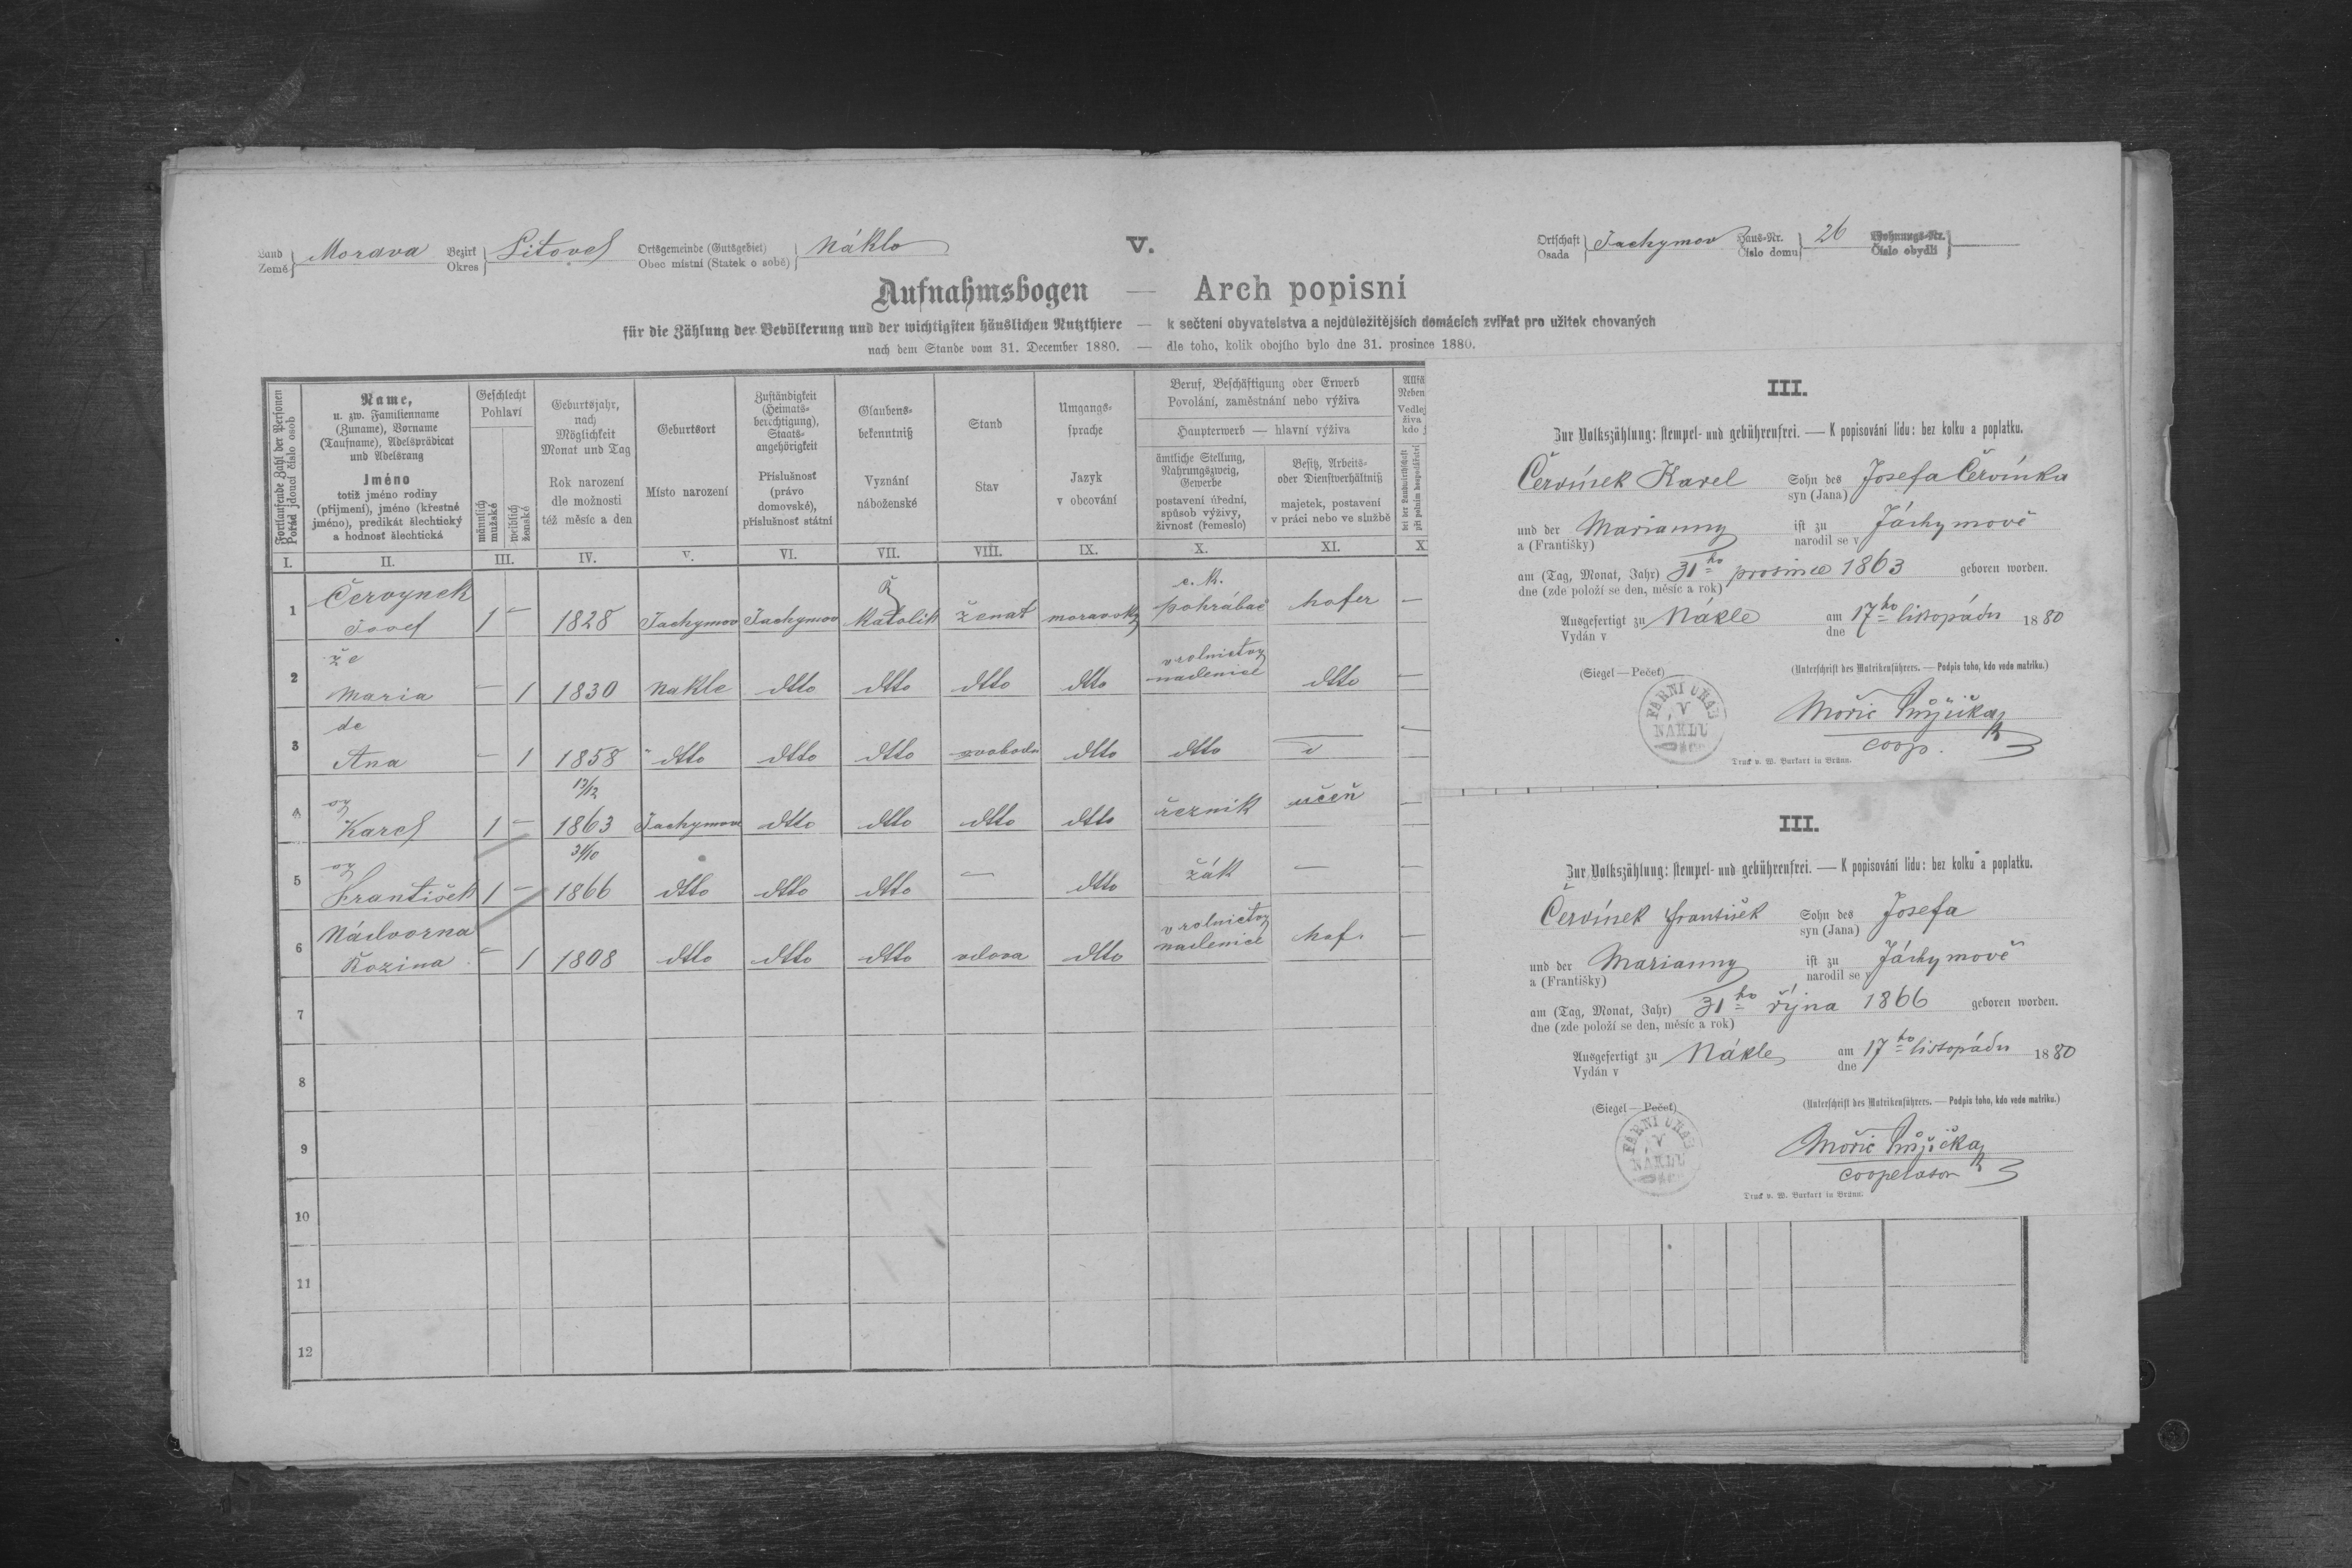 Land Země } Morava Bezirk Okres } Litovel Ortsgemeinde (Gutsgebiet) Obec místní (Statek o sobě) } Náklo V. Ortschaft Osada } Jachymov Haus-Nr. Číslo domu } 26 Wohnungs-Nr. Číslo obydlí }
Aufnahmsbogen — Arch popisní
für die Zählung der Bevölkerung und der wichtigsten häuslichen Nutzthiere — k sečtení obyvatelstva a nejdůležitějších domácích zvířat pro užitek chovaných
nach dem Stande vom 31. December 1880. — dle toho, kolik obojího bylo dne 31. prosince 1880.
Fortlaufende Zahl der Personen
Pořád jdoucí číslo osob
I.
Name,
u. zw. Familienname
(Zuname), Vorname
(Taufname), Adelsprädicat
und Adelsrang
Jméno
totiž jméno rodiny
(příjmení), jméno (křestné
jméno), predikát šlechtický
a hodnosť šlechtická
II.
Geschlecht
Pohlaví
männlich
mužské
weiblich
ženské
III.
Geburtsjahr,
nach
Möglichkeit
Monat und Tag
Rok narození
dle možnosti
též měsíc a den
IV.
Geburtsort
Místo narození
V.
Zuständigkeit
(Heimats-
berechtigung),
Staats-
angehörigkeit
Příslušnosť
(právo
domovské),
příslušnosť státní
VI.
Glaubens-
bekenntniß
Vyznání
náboženské
VII.
Stand
Stav
VIII.
Umgangs-
sprache
Jazyk
v obcování
IX.
Beruf, Beschäftigung oder Erwerb
Povolání, zaměstnání nebo výživa
Haupterwerb — hlavní výživa
ämtliche Stellung,
Nahrungszweig,
Gewerbe
postavení úřední,
spůsob výživy,
živnosť (řemeslo)
X.
Besitz, Arbeits-
oder Dienstverhältniß
majetek, postavení
v práci nebo ve službě
XI.
Allfä
Neben
Vedlej
živa
kdo
bei der Landwirthschaft
při polním hospodářství
X
1 Červynek Josef 1 — 1828 Jachymov Jachymov Ř Katolik ženat moravsky c. k. pohrábač hofer —
2 že Maria — 1 1830 Nakle dtto dtto dtto dtto v rolnictvy nadenice dtto —
3 dc Ana — 1 1858 dtto dtto dtto svoboda dtto dtto —
4 sy Karel 1 — 13/12 1863 Jachymove dtto dtto dtto dtto řeznik učeň —
5 sy František 1 — 31/10 1866 dtto dtto dtto — dtto žák — —
6 Nádvorna Rozina — 1 1808 dtto dtto dtto vdova dtto v rolnictvy nadenice hof. —
7
8
9
10
11
12
III.
Zur Volkszählung: stempel- und gebührenfrei. — K popisování lidu: bez kolku a poplatku.
Červínek Karel Sohn des syn (Jana) Josefa Červínka
und der a (Františky) Marianny ist zu narodil se v Jáchymově
am (Tag, Monat, Jahr) dne (zde položí se den, měsíc a rok) 31ho prosince 1863 geboren worden.
Ausgefertigt zu Vydán v Nákle am dne 17ho listopádu 1880
(Siegel — Pečeť) (Unterschrift des Matrikenführers. — Podpis toho, kdo vede matriku.)
FARNÍ ÚŘAD V NÁKLU
Mořic Růžička
coop.
Druck v. W. Burkart in Brünn.
III.
Zur Volkszählung: stempel- und gebührenfrei. — K popisování lidu: bez kolku a poplatku.
Červínek František Sohn des syn (Jana) Josefa
und der a (Františky) Marianny ist zu narodil se v Jáchymově
am (Tag, Monat, Jahr) dne (zde položí se den, měsíc a rok) 31ho října 1866 geboren worden.
Ausgefertigt zu Vydán v Nákle am dne 17ho listopádu 1880
(Siegel — Pečeť) (Unterschrift des Matrikenführers. — Podpis toho, kdo vede matriku.)
FARNÍ ÚŘAD V NÁKLU
Mořic Růžička
cooperator
Druck v. W. Burkart in Brünn.